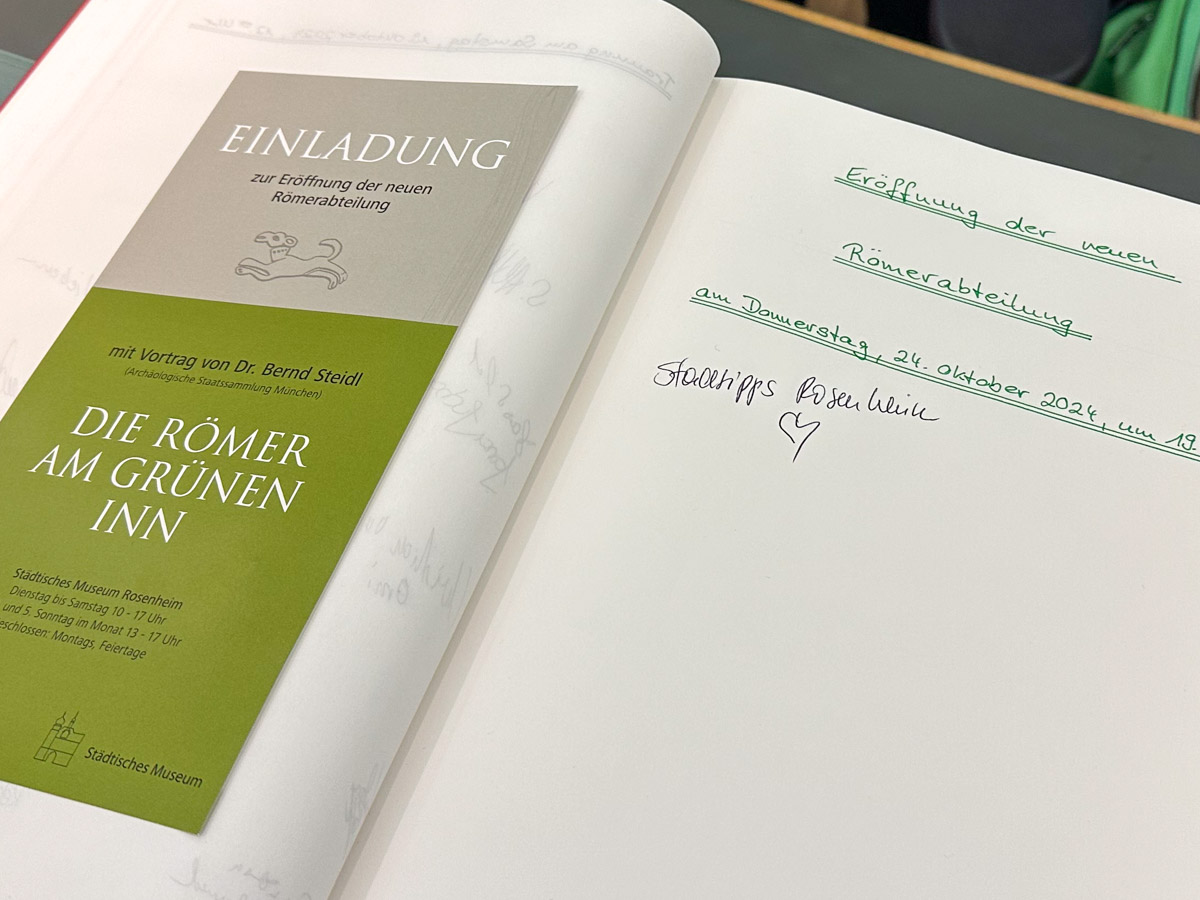 EINLADUNG
zur Eröffnung der neuen
Römerabteilung
mit Vortrag von Dr. Bernd Steidl
(Archäologische Staatssammlung München)
DIE RÖMER
AM GRÜNEN
INN
Städtisches Museum Rosenheim
Dienstag bis Samstag 10 - 17 Uhr
und 5. Sonntag im Monat 13 - 17 Uhr
eschlossen: Montags, Feiertage
Städtisches Museum
Eröffnung der neuen
Römerabteilung
am Donnerstag, 24. Oktober 2024, um 19.
Stadtipps Rosenheim